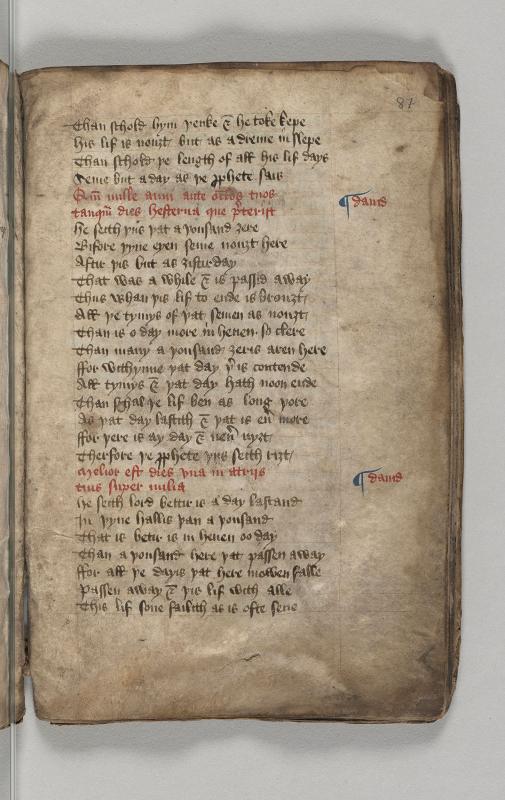 87
Than schold hym þenke & he toke kepe
His lif is nouȝt but as a dreme in slepe
Than schold þe length of all his lif days
Seme but a day as þe prophete sais
Qm̄ mille anni ante oculos tuos
tanqm̄ dies hesterna que preterijt
¶ dauid
he seith þus þat a þousand ȝere
Bifore þyne eyen seme nouȝt here
Aftir þis but as ȝistirday
That was a while & is passid away
Thus whan þis lif to ende is brouȝt
All þe tymys of þat semen as nouȝt
Than is o day more in heuen so clere
Than many a þousand ȝeris aren here
ffor withynne þat day þer is contende
All tymys & þat day hath noon ende
Than schal þe lif ben as long þore
As þat day lastith & þat is euer more
ffor þere is ay day & neuer nyȝt
Therfore þe prophete þus seith riȝt
Melior est dies vna in atrijs
tuis super milia
¶ dauid
he seith lord bettir is a day lastand
In þyne hallis þan a þousand
That is betir is in heuen oo day
Than a þousand here þat passen away
ffor all þe dayis þat here mowen falle
Passen away & þis lif with alle
This lif sone failith as is ofte sene